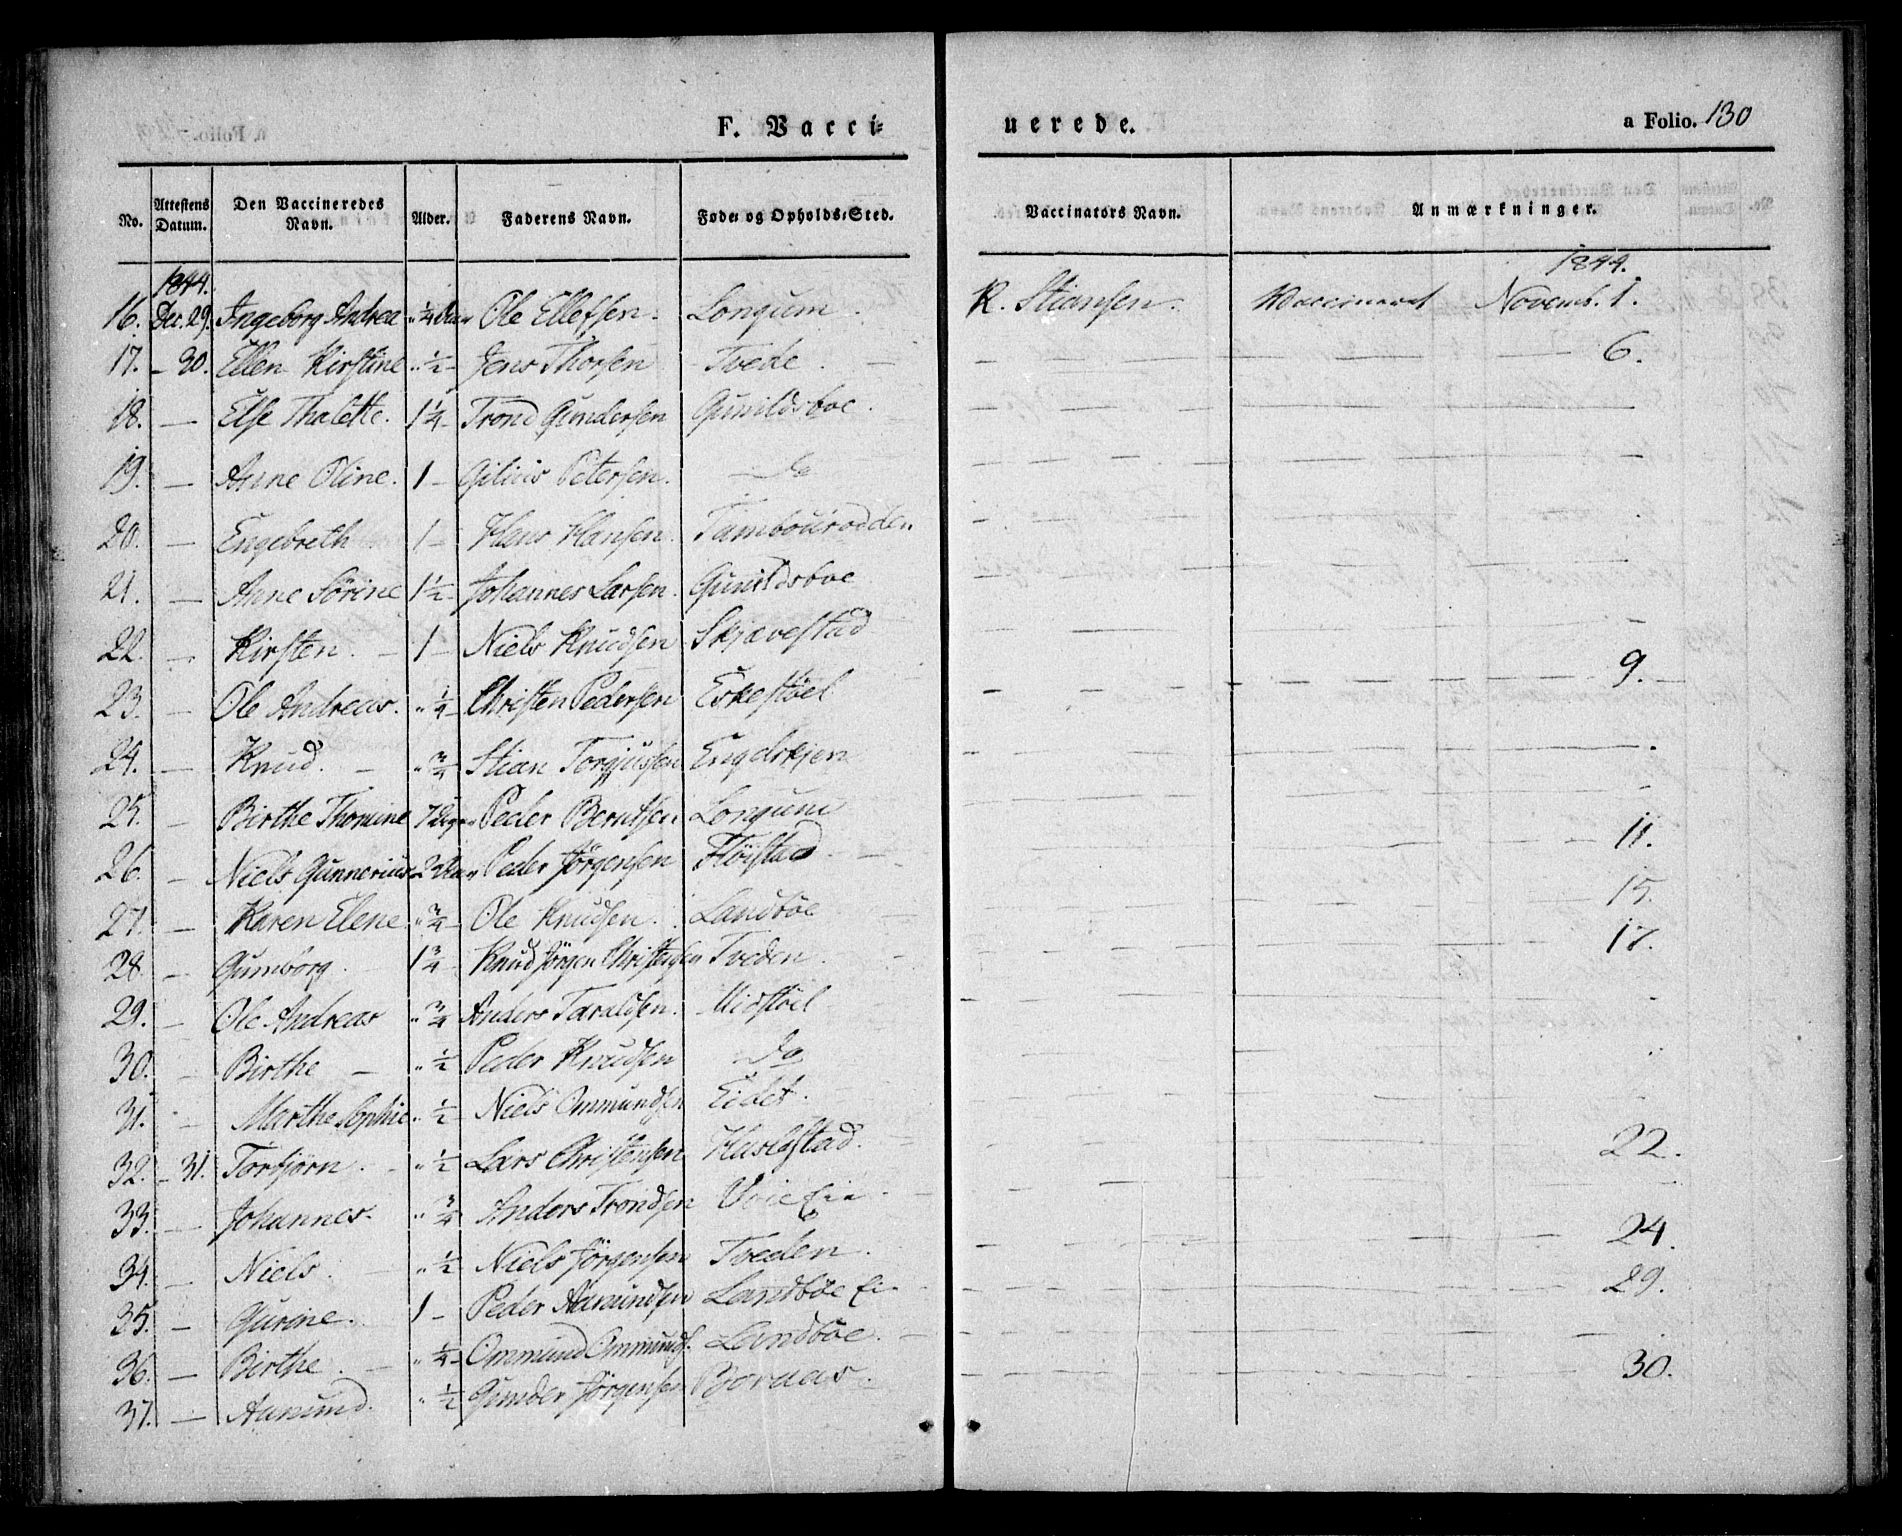 F. Vacci-
nerede.
a Folio. 130
No. Attestens Datum. Den Vaccineredes Navn. Alder. Faderens Navn. Føde- og Opholds-Sted. Vaccinators Navn. Anmærkninger.
1844. 1844.
16. Dec. 29. Ingeborg Andrea " 1/4 Ole Ellefsen. Longum. R. Stiansen. Vaccineret Novemb. 1.
17. - 30. Ellen Kirstine " 1/2 - Jens Thorsen Tvede. — 6.
18. — Else Thalette. 1 1/4 - Trond Gundersen Gunildsboe. —
19. — Anne Oline. 1 - Gilius Petersen. do —
20. — Engebreth 1 - Hans Hansen. —
21. — Anne Sørine 1 1/2 - Johannes Larsen. Gunildsboe —
22. — Kirsten. — 1 - Niels Knudsen Skjævestad —
23. — Ole Andreas. " 1/4 - Christen Pedersen Eskestøel — 9.
24. — Knud. — " 3/4 Stian Torgjusen —
25. - Birthe Thomine 7 Peder Berntsen Longum —
26. - Niels Gunnerius 2 Peder Jørgensen Fløistad — 11.
27. - Karen Elene " 3/4 - Ole Knudsen. Landbøe 15.
28. - Gunborg. 1 3/4 - Knud Jørgen Christensen Tveden. 17.
29. - Ole Andreas " 3/4 Anders Taraldsen. Midstøel —
30. - Birthe — " 1/2 Peder Knudsen do
31. - Marthe Sophie " 1/2 Niels Ommundsen Eidet.
32. - 31. Torbjørn. - " 1/2 Lars Christensen Haslestad. 22.
33. — Johannes. " 3/4 Anders Trondsen —
34. - Niels. " 1/2 Niels Jørgensen Tveden. — 24.
35. - Gurine. 1 - Peder Aanundsen Landbøe Ei — 29.
36. — Birthe. — " 1/4 - Ommund Ommunds. Landbøe. —
37. — Aanund. " 1/2 Gunder Jørgensen Bjornaas. — 30.